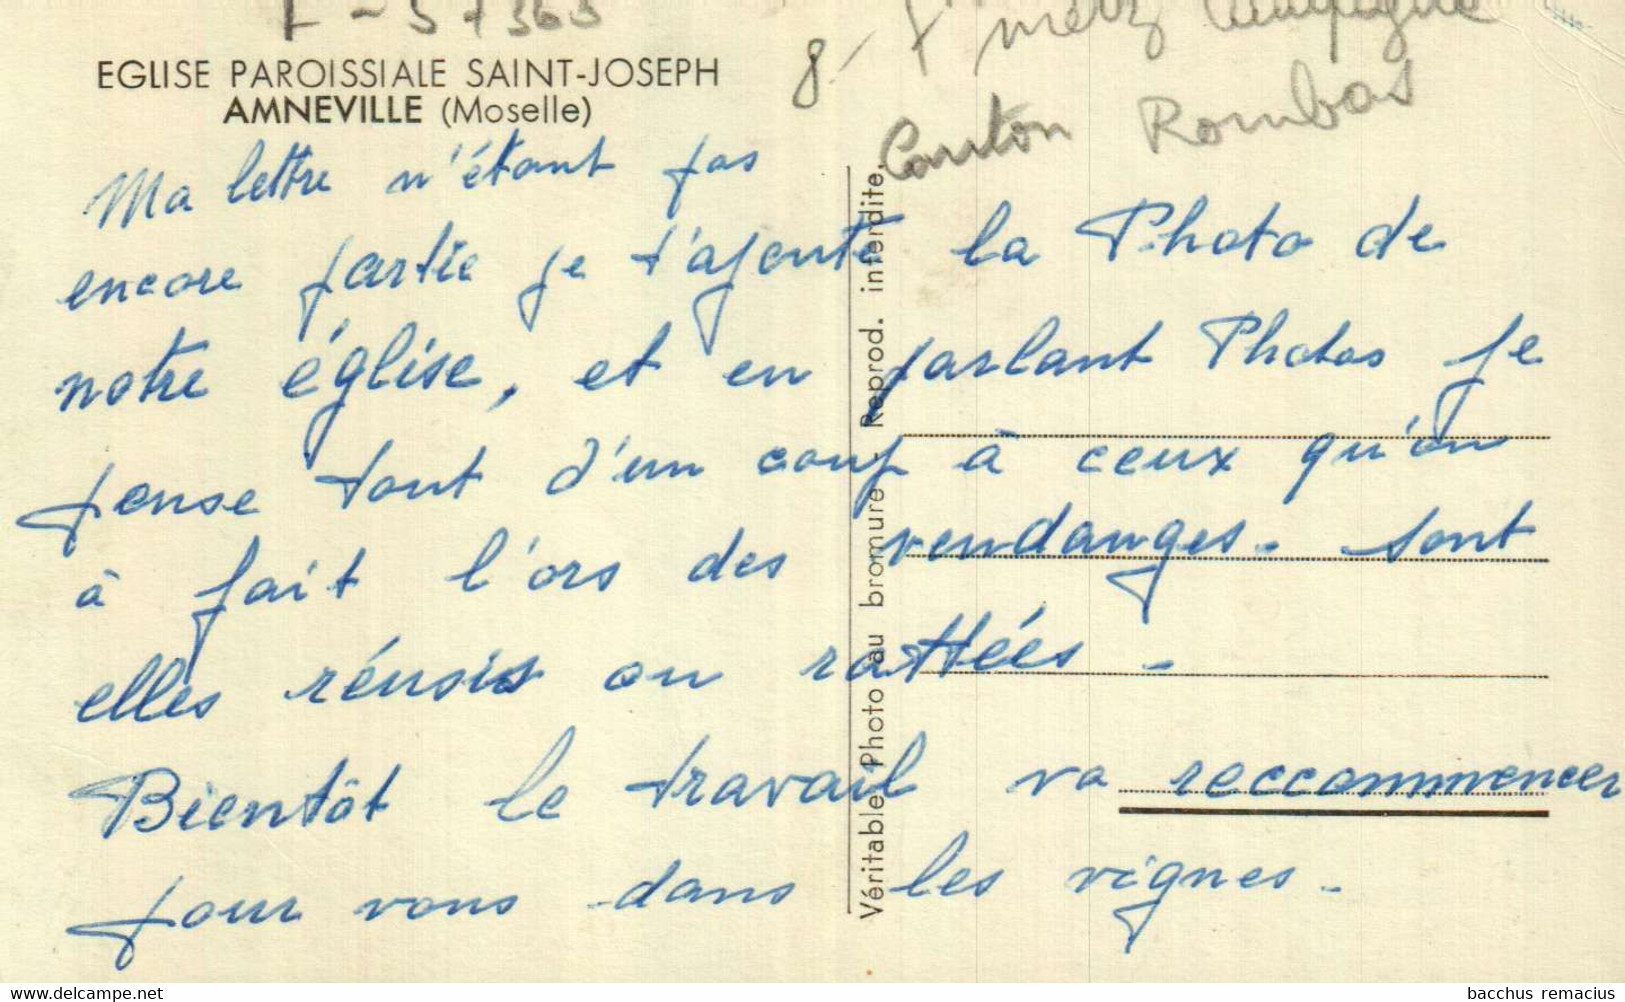 F - 57360
8 - F Metz Campagne
Canton Rombas
EGLISE PAROISSIALE SAINT-JOSEPH
AMNEVILLE (Moselle)
Ma lettre n'étant pas
encore partie je t'ajoute la Photo de
notre église, et en parlant Photos je
pense tout d'un coup à ceux qu'on
à fait l'ors des vendanges. sont
elles réusis ou rattées -
Bientôt le travail va reccommencer
pour vous dans les vignes.
Véritable Photo au bromure - Reprod. interdite.
bacchus remacius
www.delcampe.net